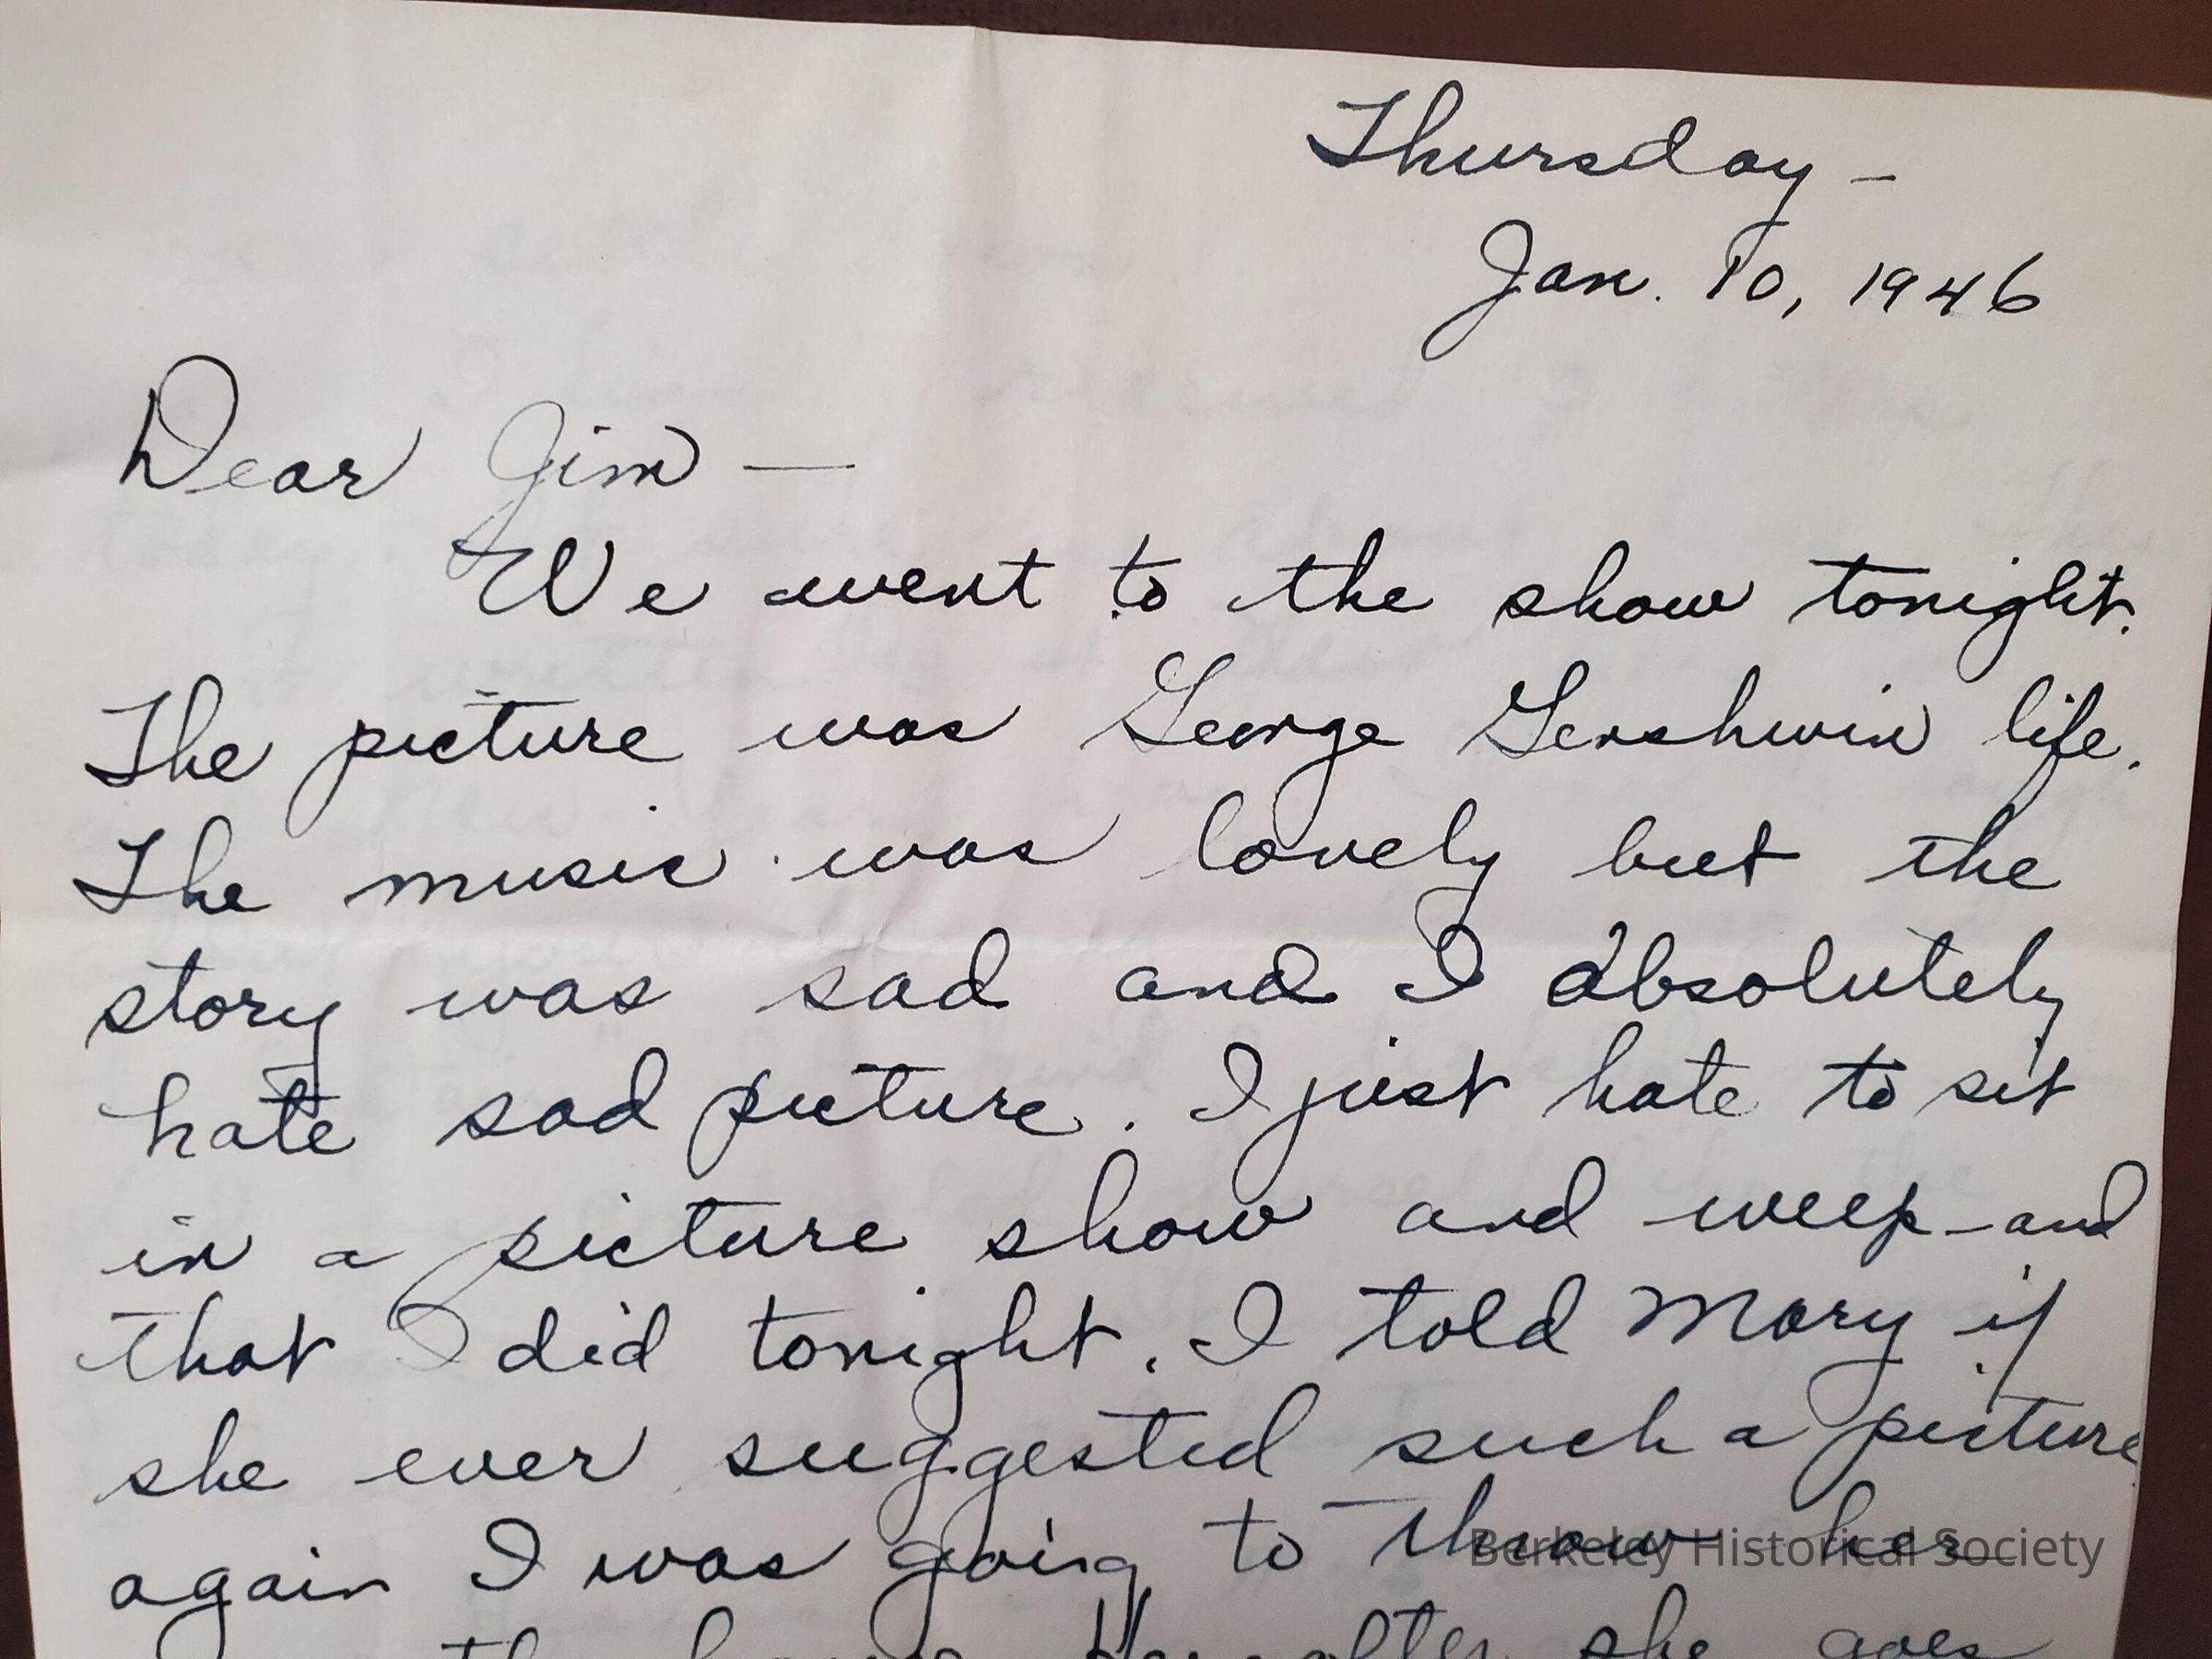 Thursday –
Jan. 10, 1946
Dear Jim —
We went to the show tonight.
The picture was George Gershwin life.
The music was lovely but the
story was sad and I absolutely
hate sad picture. I just hate to sit
in a picture show and weep – and
that I did tonight. I told Mary if
she ever suggested such a picture
again I was going to throw her
the house. Hereafter she goes
Berkeley Historical Society